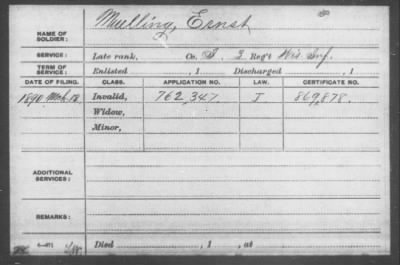 Mulling, Ernst
NAME OF SOLDIER:
SERVICE: Late rank, Co. 3 Reg't Wis Inf.
TERM OF SERVICE: Enlisted , 1 Discharged , 1
DATE OF FILING. CLASS. APPLICATION NO. LAW. CERTIFICATE NO.
1890 Mch. Invalid, 762,347. J 869,878.
Widow,
Minor,
ADDITIONAL SERVICES:
REMARKS:
Died , 1 , at